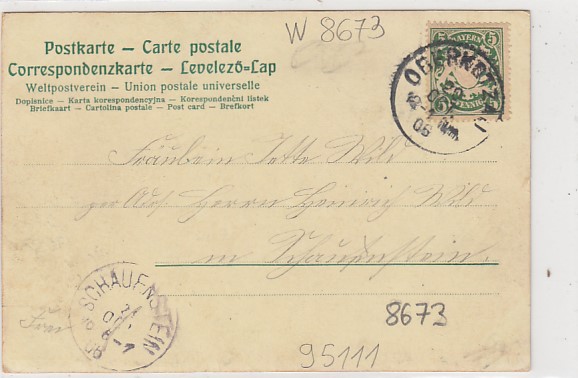 W 8673
Postkarte – Carte postale
Correspondenzkarte – Levelező-Lap
Weltpostverein – Union postale universelle
Dopisnice – Karta korespondencyjna – Korespondenční lístek
Briefkaart – Cartolina postale – Post card – Brefkort
5 BAYERN 5
PFENNIG
OBERKOTZAU
06
Fräulein Jette Wild
per Adr. Herrn Heinrich Wild
in Schauenstein.
SCHAUENSTEIN
06
8673
95111